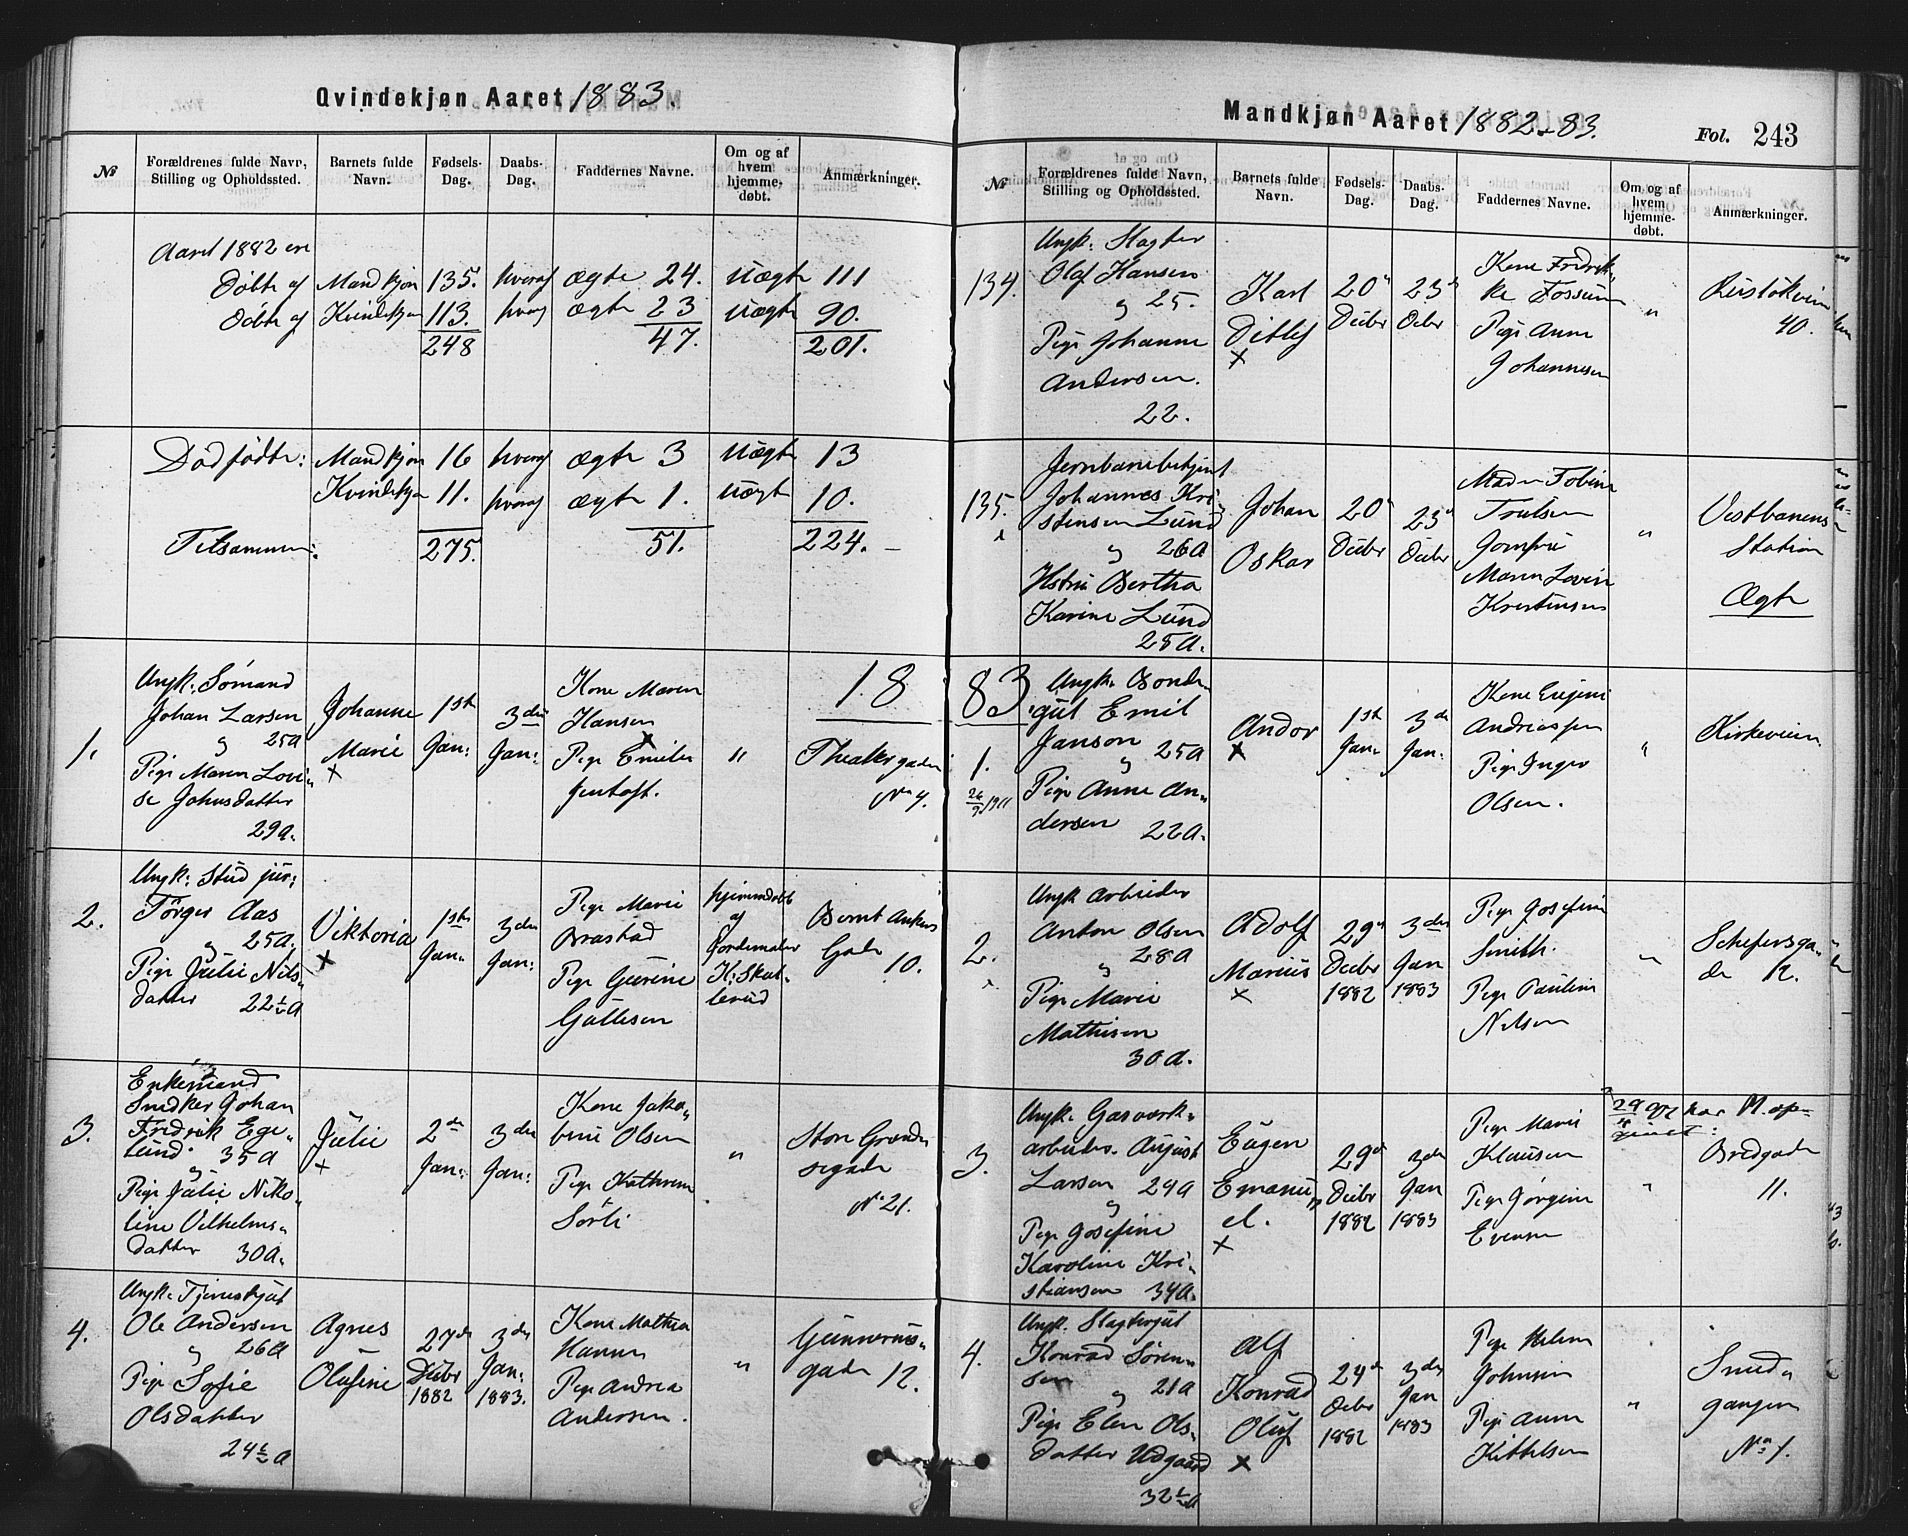 Qvindekjøn Aaret 1883.
№
Forældrenes fulde Navn, Stilling og Opholdssted.
Barnets fulde Navn.
Fødsels-Dag.
Daabs-Dag.
Faddernes Navne.
Om og af hvem hjemme-døbt.
Anmærkninger.
Aaret 1882 ere
Döbte af Mandkjön 135. hveraf ægte 24. uægte 111
Döbte af Kvindekjön 113. hveraf ægte 23 uægte 90.
248 47. 201.
Dödfödte: Mandkjön 16 hveraf ægte 3 uægte 13
Kvindekjön 11. hveraf ægte 1. uægte 10.
Tilsammen: 275. 51. 224.
18
1.
Ungk: Sömand
Johan Larsen
og 25a
Pige Maren Lovi-
se Johnsdatter
29a.
Johanne
Marie
x
1ste
Jan:
3die
Jan:
Kone Maren
Hansen
x
Pige Emilie
Jentoft.
"
Theatergaden
No 4.
2.
Ungk: Stud jur:
Törger Aas
og 25a.
Pige Julie Nils-
datter 22½a
Viktoria
x
1ste
Jan:
3die
Jan:
Pige Marie
Braastad
Pige Gurine
Gullesen
hjemmedöbt
af
Jordemoder
K: Skul-
lerud
Bernt Ankers
Gade
10.
3.
Enkemand
Snedker Johan
Fredrik Ege-
lund. 35a
og
Pige Julie Niko-
line Vilhelms-
datter 30a.
Julie
x
2den
Jan:
3die
Jan:
Kone Jako-
bine Olsen
Pige Kathrine
Sörli
"
Store Grænd-
segade
No 21.
4.
Ungk: Tjenestkjut
Ole Andersen
og 26a
Pige Sofie
Olsdatter
24½a
Agnes
Olufine
27de
Decbr
1882
3die
Jan:
1883.
Kone Mathea
Hansen
Pige Andrea
Andersen.
"
Gunnerus-
gade 12.
Mandkjøn Aaret 1882-83.
Fol. 243
№
Forældrenes fulde Navn, Stilling og Opholdssted.
Barnets fulde Navn.
Fødsels-Dag.
Daabs-Dag.
Faddernes Navne.
Om og af hvem hjemme-døbt.
Anmærkninger.
134.
Ungk: Slagter
Olaf Hansen
og 25.
Pige Johanne
Andersen.
22.
Karl
Ditlef
x
20de
Decbr
23de
Decbr
Kone Fredrik-
ke Fossum
Pige Anne
Johannesen
"
Ruslökveien
40.
135.
Jernbanebetjent
Johannes Kri-
stensen Lund
og 26a
Hstru Bertha
Karine Lund
25a.
Johan
Oskar
20de
Decbr
23de
Decbr
Madm Tobine
Trulsen
Jomfru
Maren Lovise
Kristensen
"
Vestbanens
Station
Ægte
83
1.
26/9 1911
Ungk. Bonde-
gut Emil
Janson
og 25a
Pige Anne An-
dersen 22a.
Andor
x
1ste
Jan:
3die
Jan:
Kone Eugenie
Andreassen
Pige Inger
Olsen.
"
Kirkeveien
2.
Ungk Arbeider
Anton Olsen
og 28a
Pige Marie
Mathisen
30a.
Adolf
Marius
x
29de
Decbr
1882
3die
Jan
1883
Pige Josefine
Smith.
Pige Pauline
Nilsen
"
Schefersga-
de 12.
3.
Ungk. Gasverk-
arbeider. August
Larsen 29a
og
Pige Josefine
Karoline Kri-
stiansen 34a.
Eugen
Emanu-
el.
x
29de
Decbr
1882
3die
Jan
1883
Pige Marie
Klausen
Pige Jörgine
Evensen
"
Bredgade
11.
4.
Ungk. Slagtergut
Konrad Sören-
sen
og 21a
Pige Elen Ols-
datter Udgaard
32½a
Alf
Konrad
Oluf
x
24de
Decbr
1882
3die
Jan
1883
Pige Helene
Johnsen
Pige Anne
Kittelsen
"
Smed-
gangen
No 1.